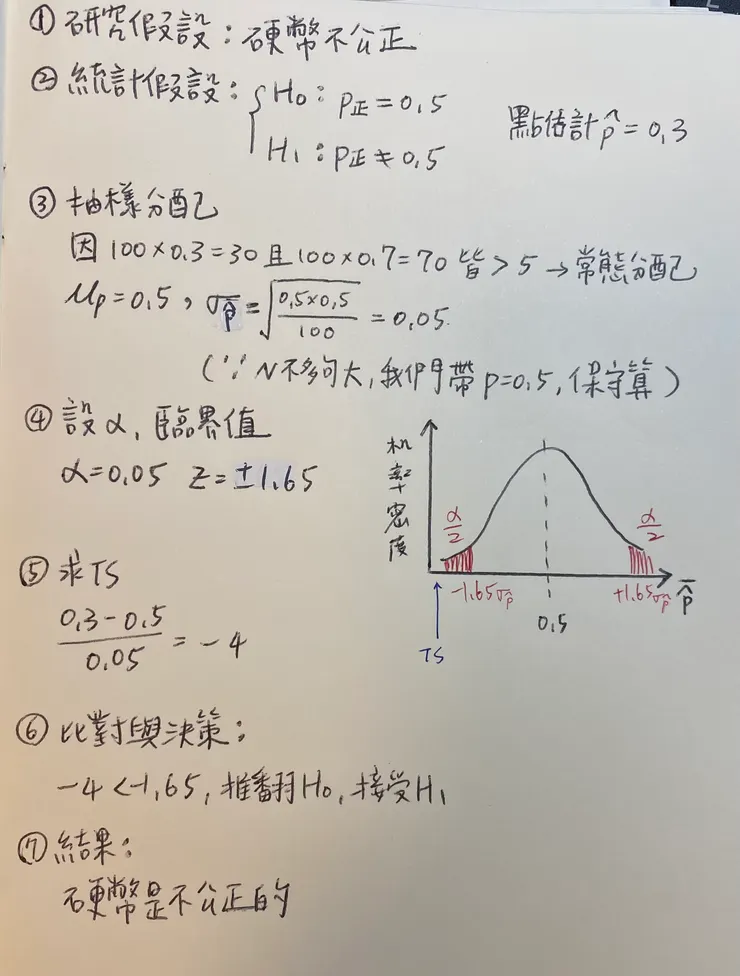 ① 研究假設：硬幣不公正
② 統計假設：{ H₀：p正 = 0.5
H₁：p正 ≠ 0.5
點估計 p̂ = 0.3
③ 抽樣分配
因 100×0.3=30 且 100×0.7=70 皆 > 5 → 常態分配
μp = 0.5，σp̂ = √(0.5×0.5/100) = 0.05
(∵ N不夠大，我們帶 p=0.5，保守算)
④ 設α、臨界值
α=0.05 Z=±1.65
機率密度
α/2
α/2
-1.65σp̂
+1.65σp̂
p̂
0.5
TS
⑤ 求TS
(0.3-0.5)/0.05 = -4
⑥ 比對與決策：
-4 < -1.65，推翻H₀，接受H₁
⑦ 結果：
硬幣是不公正的